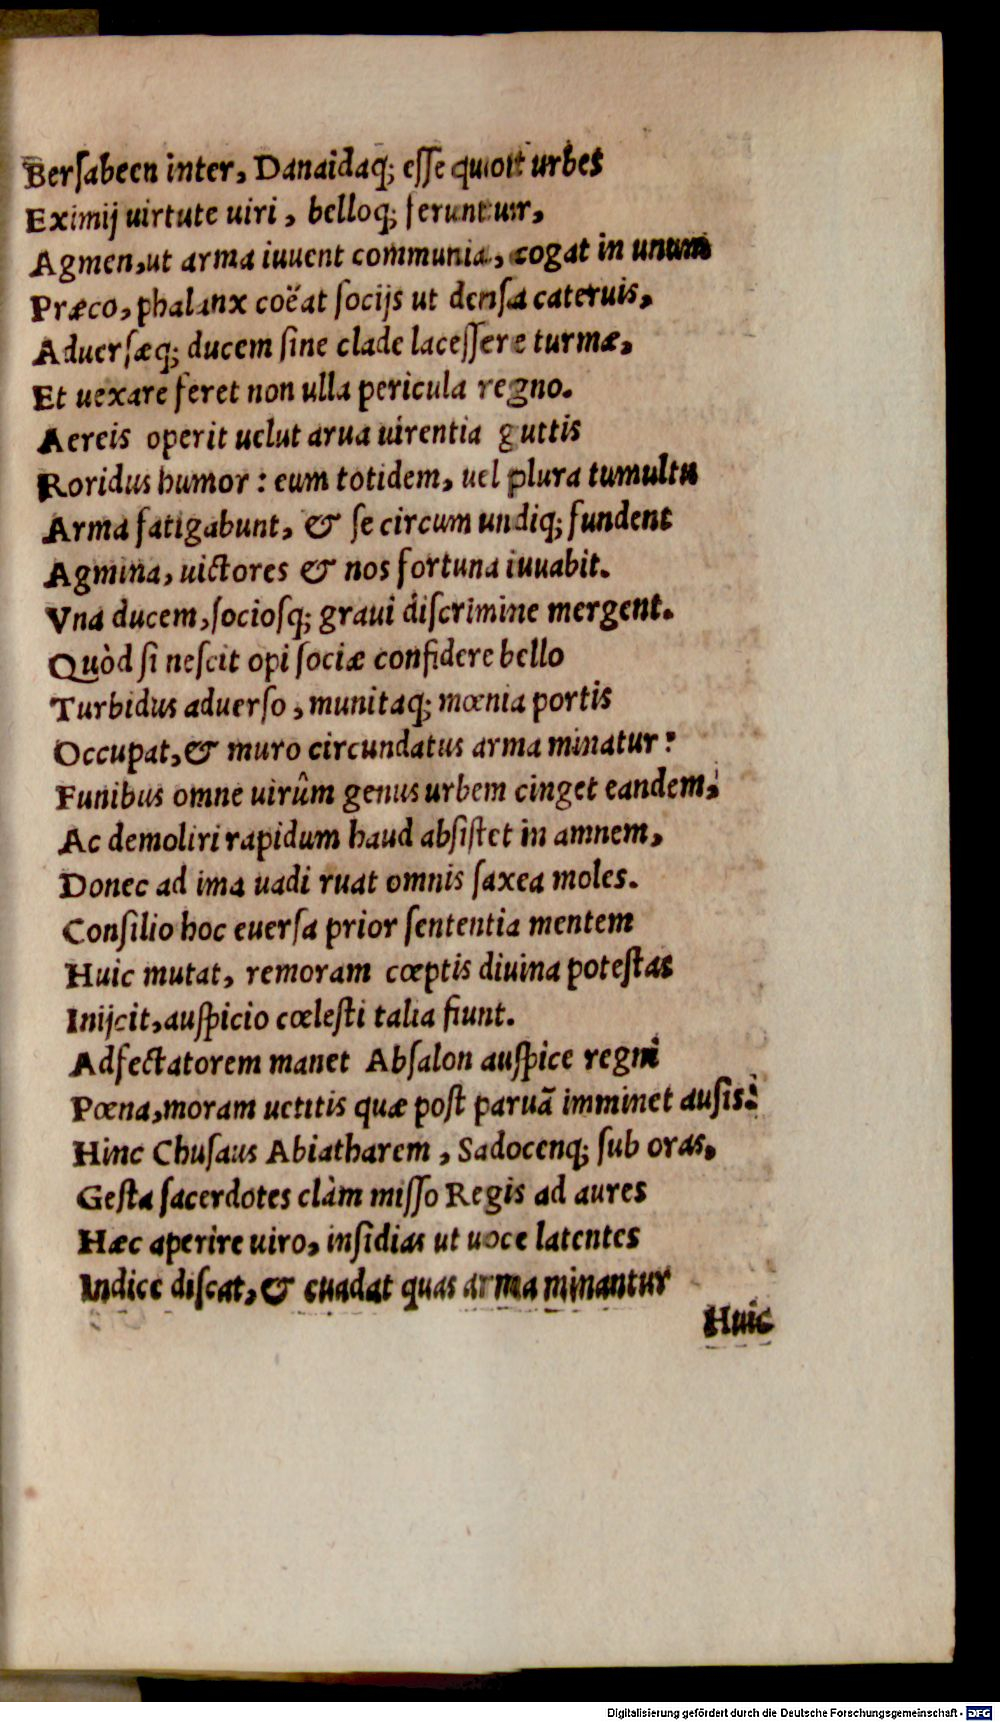 Berſabeen inter, Danaidaq; eſſe quiott urbes
Eximij uirtute uiri, belloq; feruntur,
Agmen, ut arma iuuent communia, cogat in unum
Præco, phalanx coëat ſocijs ut denſa cateruis,
Aduerſæq; ducem ſine clade laceſſere turmæ,
Et uexare feret non ulla pericula regno.
Aereis operit uelut arua uirentia guttis
Roridus humor: eum totidem, uel plura tumultu
Arma fatigabunt, & ſe circum undiq; fundent
Agmina, uictores & nos fortuna iuuabit.
Vna ducem, ſociosq; graui diſcrimine mergent.
Quòd ſi neſcit opi ſociæ confidere bello
Turbidus aduerſo, munitaq; mœnia portis
Occupat, & muro circundatus arma minatur:
Funibus omne uirûm genus urbem cinget eandem,
Ac demoliri rapidum haud abſiſtet in amnem,
Donec ad ima uadi ruat omnis ſaxea moles.
Conſilio hoc euerſa prior ſententia mentem
Huic mutat, remoram cœptis diuina poteſtas
Inijcit, auſpicio cœleſti talia fiunt.
Adfectatorem manet Abſalon auſpice regni
Pœna, moram uetitis quæ poſt paruā imminet auſis:
Hinc Chuſaus Abiatharem, Sadocenq; ſub oras,
Geſta ſacerdotes clàm miſſo Regis ad aures
Hæc aperire uiro, inſidias ut uoce latentes
Indice diſcat, & euadat quas arma minantur
Huic
Digitalisierung gefördert durch die Deutsche Forschungsgemeinschaft - DFG